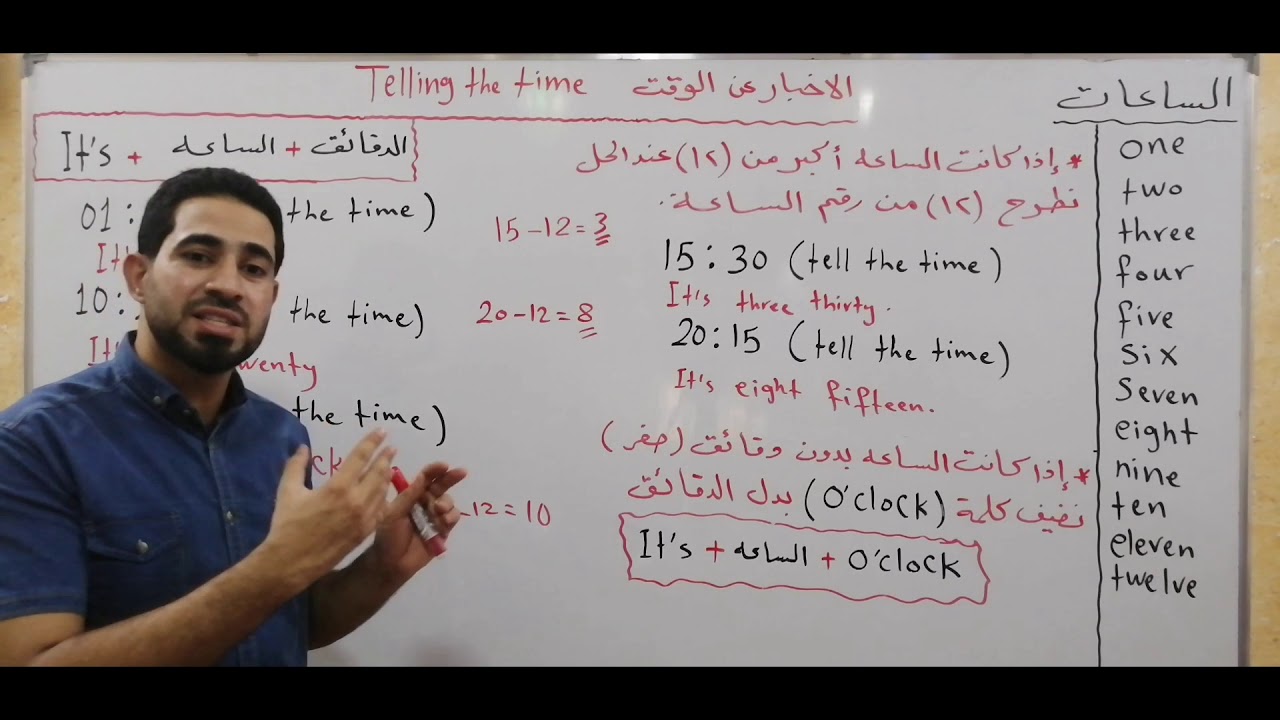 Telling the time الاخبار عن الوقت
الساعات
one
two
three
four
five
six
Seven
eight
nine
ten
eleven
twelve
It's + الساعه + الدقائق
01: the time)
It
10: the time)
It wenty
the time)
ck
15-12=3
20-12=8
12=10
* إذا كانت الساعه أكبر من (١٢) عند الحل
نطرح (١٢) من رقم الساعة.
15:30 (tell the time)
It's three thirty.
20:15 (tell the time)
It's eight fifteen.
* إذا كانت الساعه بدون دقائق (صفر)
نضيف كلمة (O'clock) بدل الدقائق
It's + الساعه + O'clock